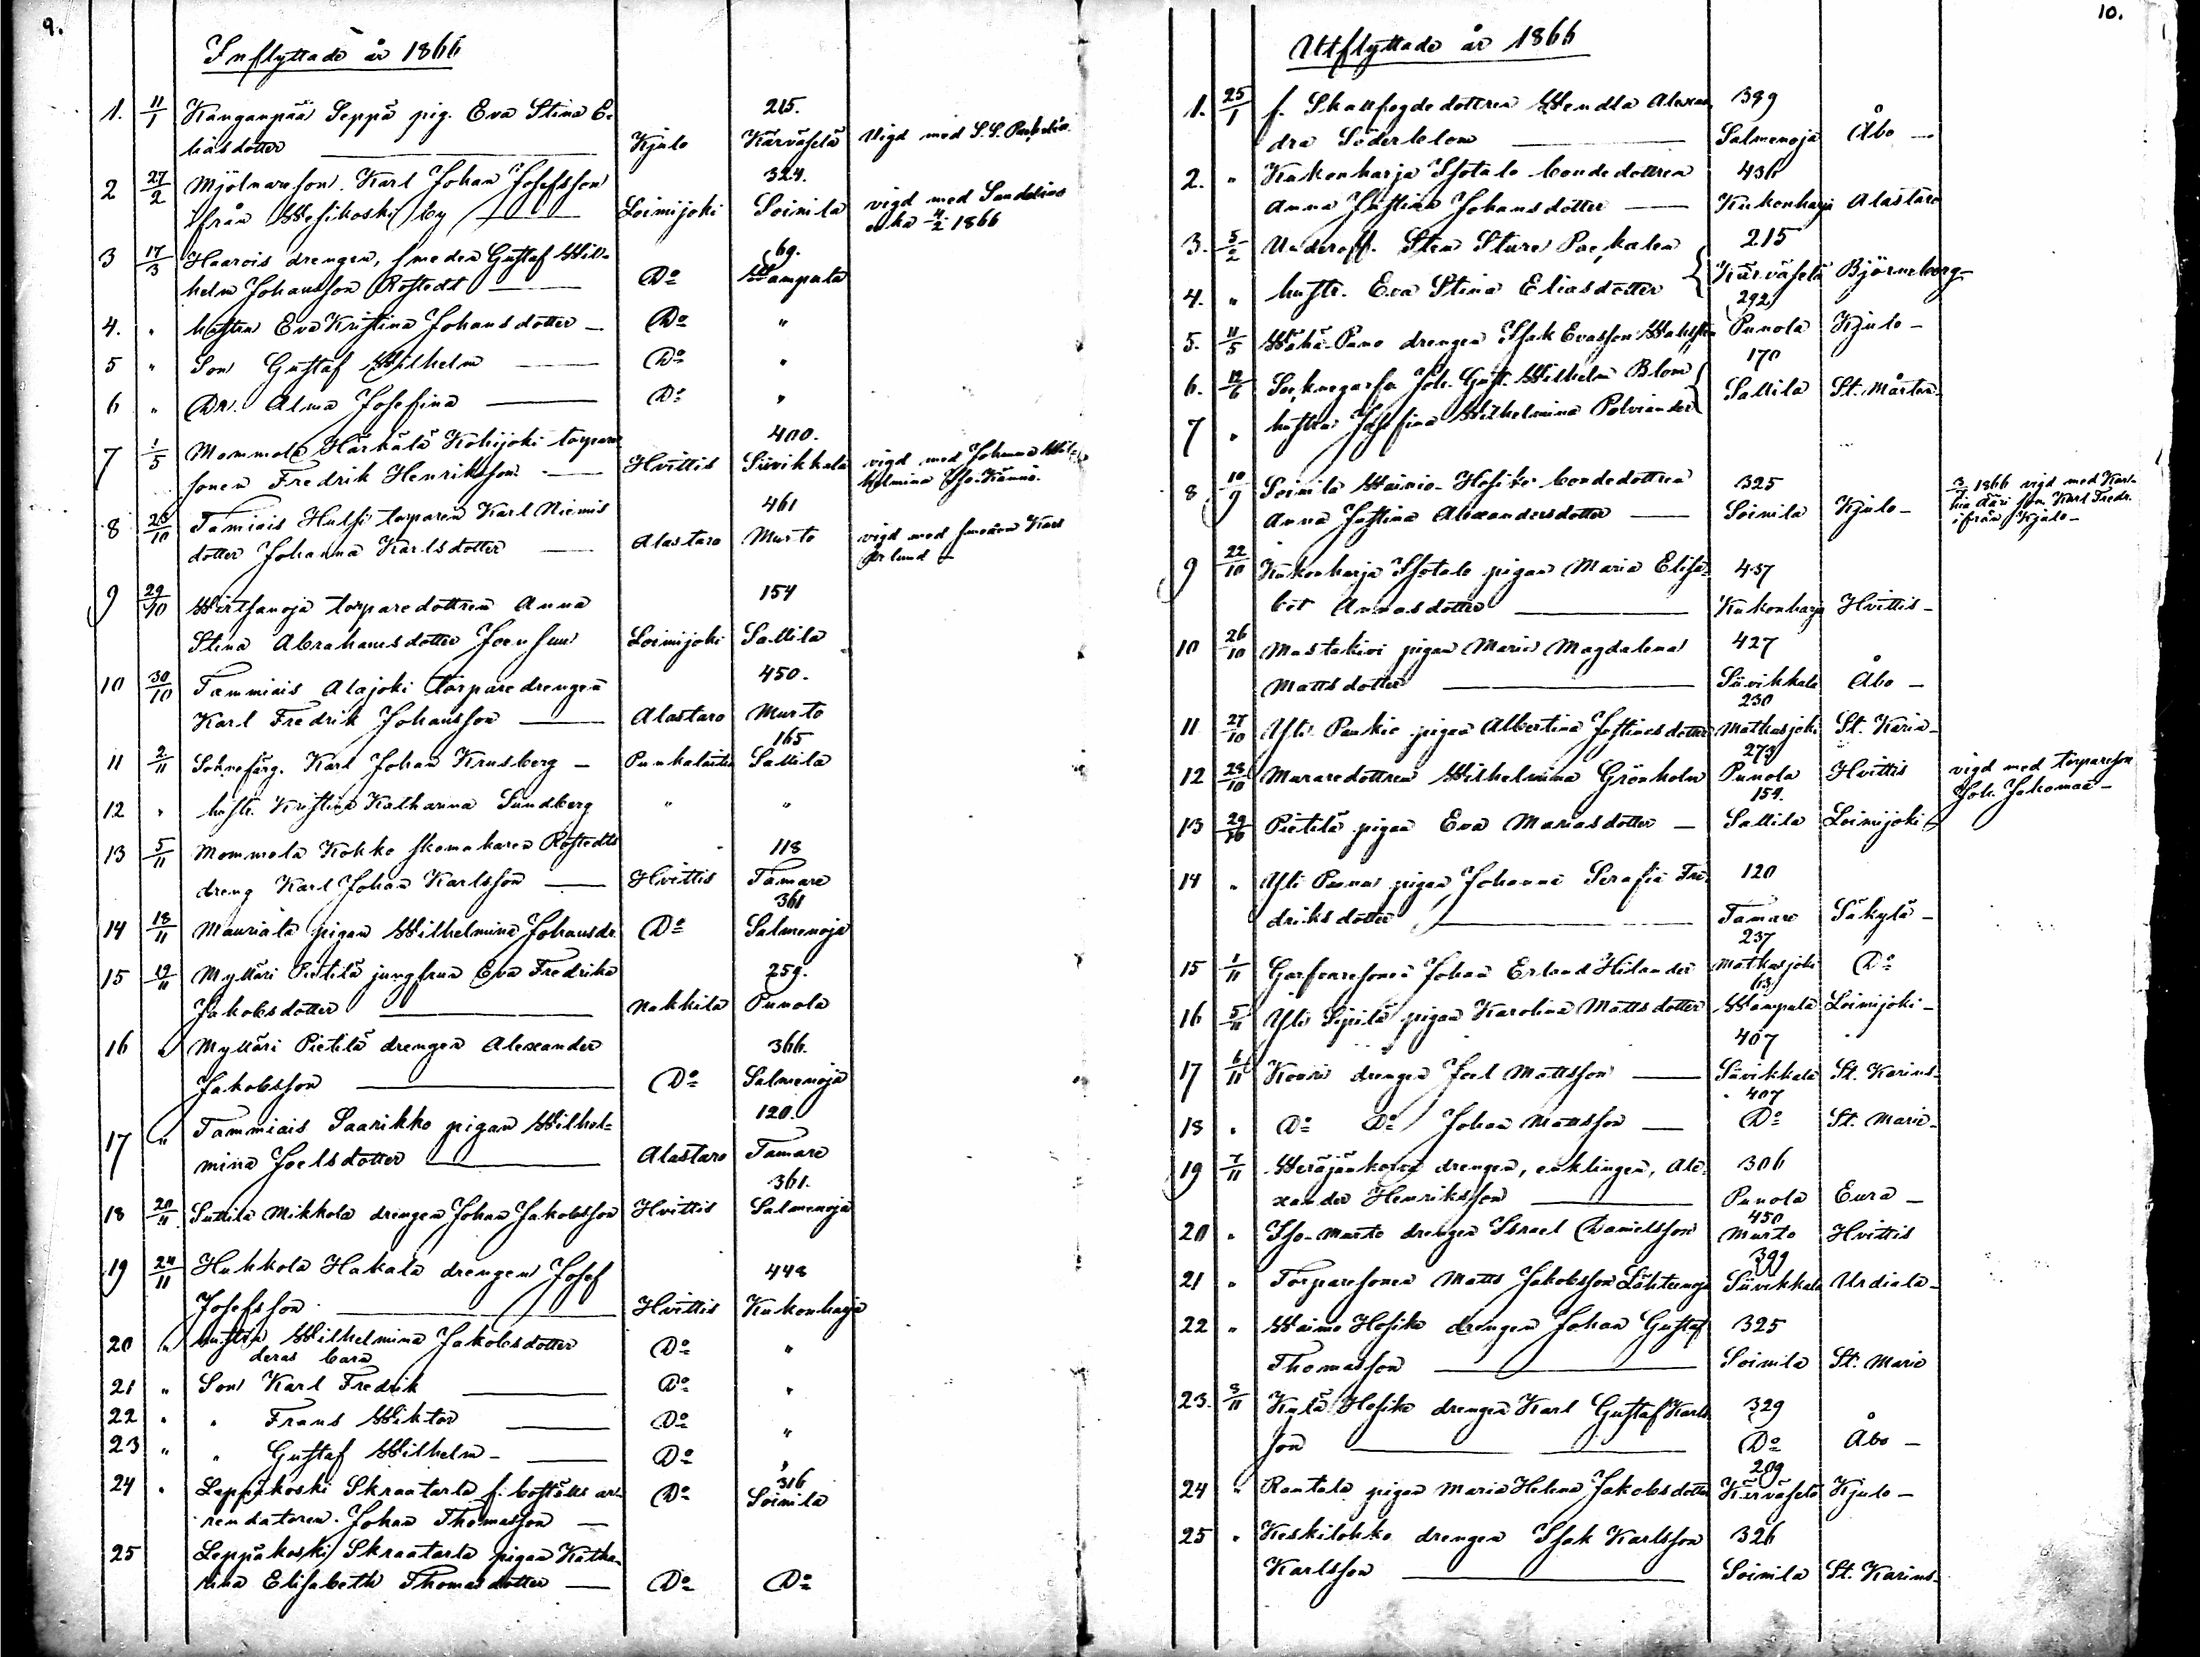 9.
Inflyttade år 1866
1. 11/1 Kanganpää Seppä pig. Eva Stina E- 215.
liasdotter Kjulo Kärväselä Vigd med S. S.
2 27/2 Mjölnareson. Karl Johan Josefsson 324.
ifrån Wesikoski by Loimijoki Soinila vigd med
enka 4/2 1866
3 17/3 Haarois drengen, smeden Gustaf Wil- 69.
helm Johansson Rostedt Do Wampula
4. " hustrun Eva Kristina Johansdotter Do "
5 " Son Gustaf Wilhelm Do "
6 " Dr. Alma Josefina Do "
7 1/5 Mommola Härkälä Kohijoki torpare 400.
sonen Fredrik Henriksson Hvittis Suvikkala vigd med Johanna Wil-
helmina Iso-Kännö.
8 23/10 Tamiais Hulsi torparen Karl Niemis 461
dotter Johanna Karlsdotter Alastaro Murto vigd med smeden Karl
9 29/10 Wirtsanoja torparedottren Anna 154
Stina Abrahamsdotter Joensuu Loimijoki Sallila
10 30/10 Tammiais Alajoki torpare drengen 450.
Karl Fredrik Johansson Alastaro Murto
11 2/11 Soknefärg. Karl Johan Krusberg Punkalaitio 165 Sallila
12 " hustr. Kristina Katharina Sundberg " "
13 5/11 Mommola Kokko skomakaren Rostedts 118
dreng Karl Johan Karlsson Hvittis Tamare
14 18/11 Mauriala pigan Wilhelmina Johansdr Do 361 Salmenoja
15 19/11 Mylläri Pietilä jungfrun Eva Fredrika 259.
Jakobsdotter Nakkila Punola
16 " Mylläri Pietilä drengen Alexander 366.
Jakobsson Do Salmenoja
17 " Tammiais Saarikko pigan Wilhel- 120.
mina Joelsdotter Alastaro Tamare
18 20/11 Suttila Mikkola drengen Johan Jakobsson Hvittis 361. Salmenoja
19 24/11 Huhkola Hakala drengen Josef 448
Josefsson Hvittis Kukonharja
20 " hustrun Wilhelmina Jakobsdotter Do "
deras barn
21 " Son Karl Fredrik Do "
22 " " Frans Wiktor Do "
23 " " Gustaf Wilhelm Do "
24 " Leppäkoski Skraatarla f. boställs ar- Do 316 Soinila
rendatoren Johan Thomasson
25 Leppäkoski Skraatarla pigan Katha-
rina Elisabeth Thomasdotter Do Do
10.
Utflyttade år 1866
1. 25/1 f. Skallfogdedottren Wendla Alexan- 389
dra Söderblom Salmenoja Åbo
2. " Kukonharja Isotalo bondedottren 436
Anna Justina Johansdotter Kukonharja Alastaro
3. 5/2 Underoff. Sten Sture 215
4. " hustr. Eva Stina Eliasdotter Kärväselä Björneborg
5. 11/5 Wähä-Puno drengen Isak Evasson 292 Punola Kjulo
6. 12/6 Joh. Gust. Wilhelm Blom 170 Sallila St. Mårten.
7 " hustrun Josefina Wilhelmina Polviander
8 10/9 Soinila Wainio-Hosike bondedottren 325
Anna Justina Alexandersdotter Soinila Kjulo 1866 vigd med
Karl Fredr.
ifrån Kjulo
9 22/10 Kukonharja Isotalo pigan Maria Elisa- 437
bet Annasdotter Kukonharja Hvittis
10 26/10 Mustakivi pigan Maria Magdalena 427
Mattsdotter Suvikkala Åbo
11 27/10 Yli Paukio pigan Albertina Justinasdotter 230 Matkusjoki St. Karin
12 28/10 Muraredottren Wilhelmina Grönholm 273 Punola Hvittis vigd med torpareson
Joh. Jokomaa
13 29/10 Pietilä pigan Eva Mariasdotter 154. Sallila Loimijoki
14 " Yli pigan Johanna Serafia Fre- 120
driksdotter Tamare Säkylä
15 1/11 Garfvaresonen Johan Erland Hilander 237 Matkusjoki Do
16 5/11 Yli Sipilä pigan Karolina Mattsdotter Wampula Loimijoki
17 6/11 Kouri drengen Joel Mattsson 407 Suvikkala St. Karins
18 " Do Do Johan Mattsson 407 Do St. Marie
19 7/11 drengen, enklingen, Ale- 306
xander Henriksson Punola Eura
20 " Iso-Murto drengen Israel Danielsson 450 Murto Hvittis
21 " Torparesonen Matts Jakobsson Lähteenoja 399 Suvikkala Urdiala
22 " Wainio Hosike drengen Johan Gustaf 325
Thomasson Soinila St. Marie
23. 8/11 Kylä Hosike drengen Karl Gustaf Karls- 329
son Do Åbo
24 " Rantala pigan Maria Helena Jakobsdotter 209 Kärväselä Kjulo
25 " Keskilohko drengen Isak Karlsson 326
Karlsson Soinila St. Karins